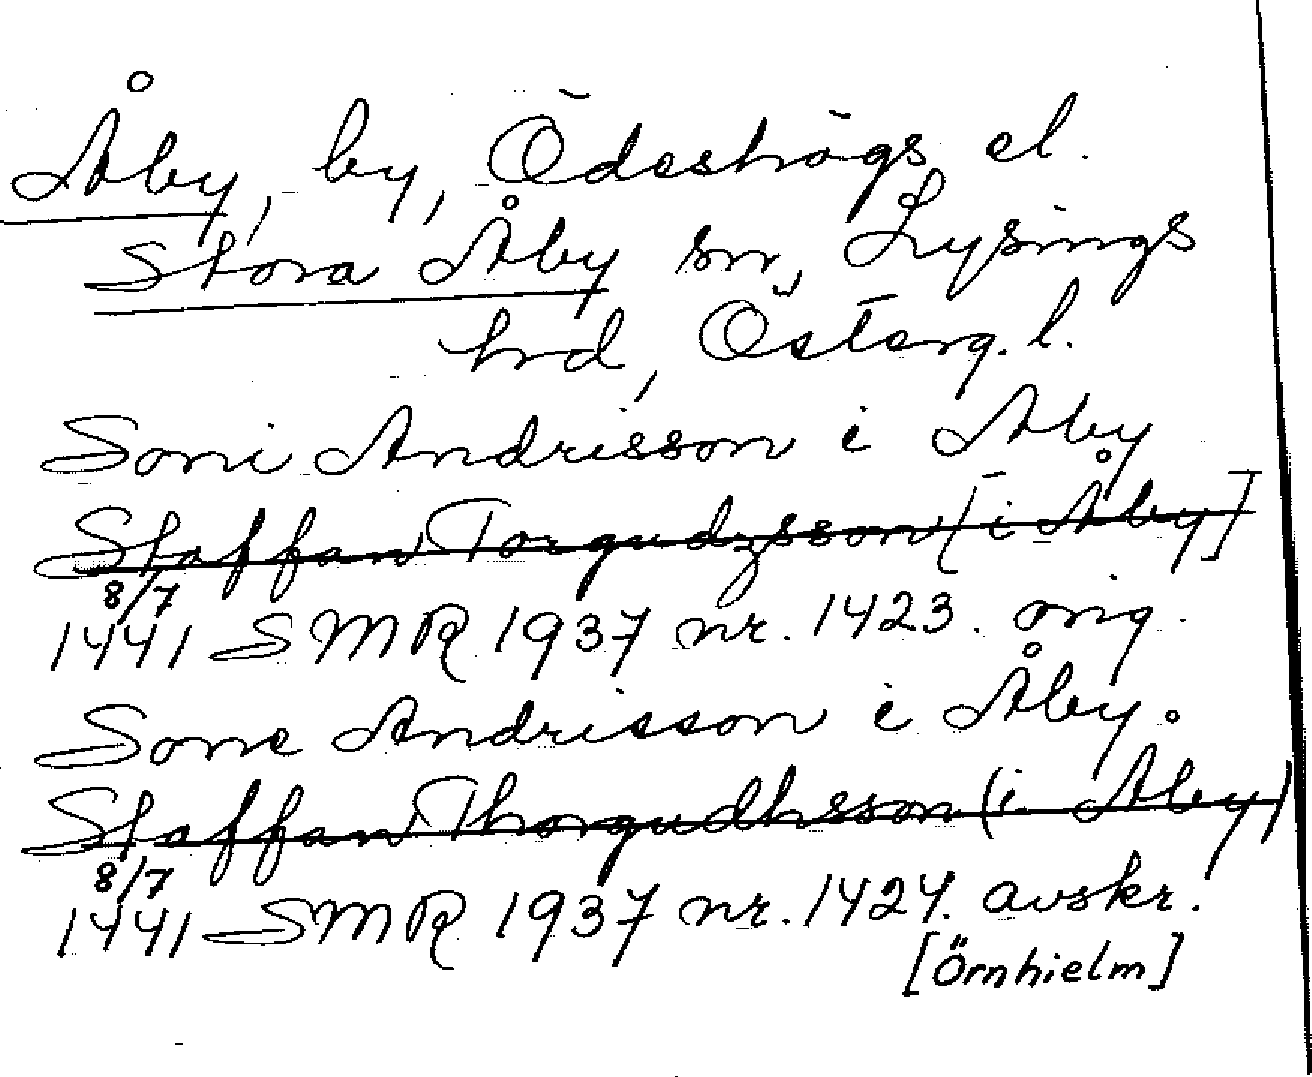 Åby, by, Ödeshögs el.
Stora Åby sn, Lysings
hrd, Österg.l.
Soni Andrisson i Aby
Staffan Torgudzsson [i Åby]
8/7
1441 SMR 1937 nr. 1423. orig.
Sone Andrisson i Åby.
Staffan Thorgudhsson (i Åby)
8/7
1441 SMR 1937 nr. 1424. avskr.
[Örnhielm]